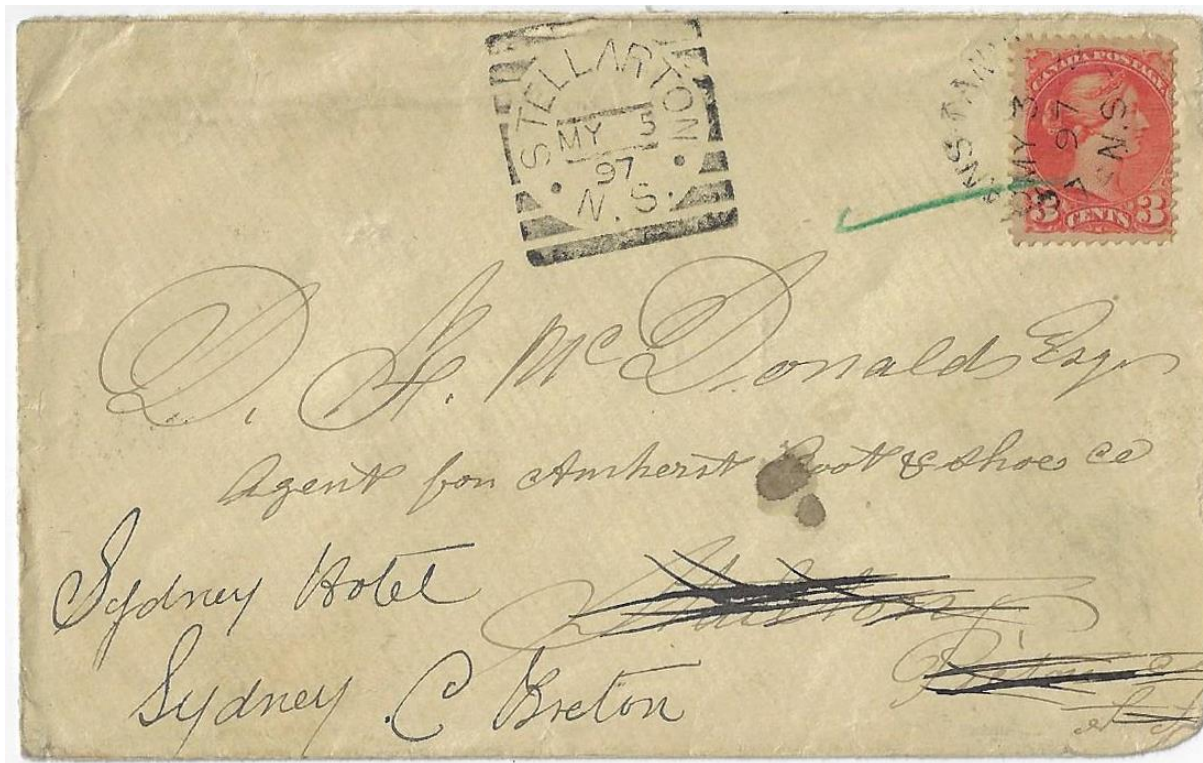 STELLARTON
MY 5
97
N.S.
CANADA POSTAGE
MY 3
97
N.S
3 CENTS 3
D. A. McDonald Esq
Agent for Amherst Boot & Shoe Co
Sydney Hotel
Sydney C Breton